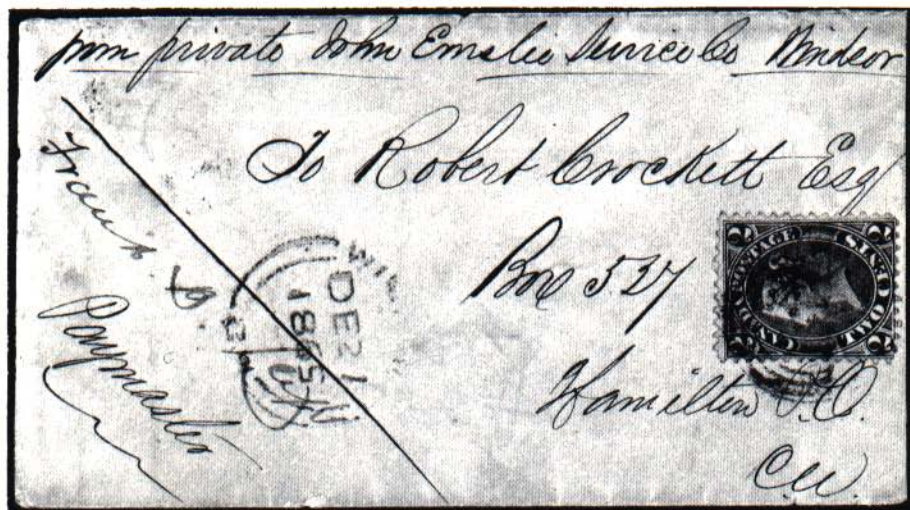 from private John Emslie Service Co Windsor
To Robert Crockett Esq
Box 527
Hamilton P.O.
C.W.
Paymaster
WIN
DE 21
1865
CANADA POSTAGE
TWO CENTS
2 2 2 2